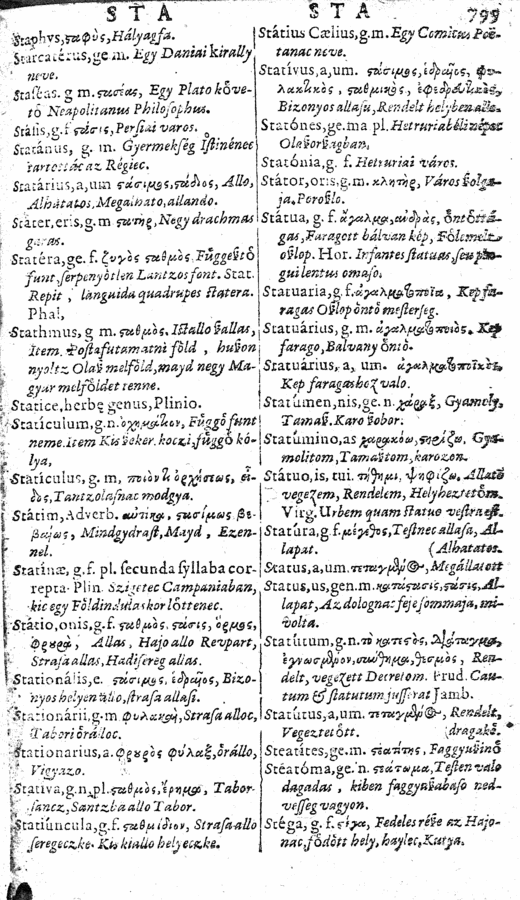 STA STA 799
Staphys, ςαφὺς, Hályagfa.
Starcatérus, ge m. Egy Daniai kirally
neve.
Staseas. g m. ςασίας, Egy Plato kỏve-
tỏ Neapolitanus Philosophus.
Stásis, g.f ςάσις, Persiai varos.
Statánus, g. m. Gyermekség Istinénec
tartottác az Régiec.
Statárius, a, um ςάσιμος, ςάδιος, Allo,
Alhatatos, Megalhato, allando.
Státer, eris, g.m ςατὴρ, Negy drachmas
garas.
Statéra, ge. f. ζυγὸς ςαθμὸς, Fủggesztỏ
funt, serpenyỏtlen Lantzos font. Stat.
Repit, languida quadrupes statera.
Phal,
Stathmus, g m. ςαθμὸς. Istallo vallas,
Item. Postafutamatni fỏld, huszon
nyoltz Olasz melfỏld, mayd negy Ma-
gyar melfỏldet tenne.
Statice, herbę genus, Plinio.
Statículum, g.n. Fủggỏ funt
neme. Item Kis szeker. koczi, fủggỏ kỏ-
lya,
Staticulus, g. m,
Tantzolasnac modgya.
Státim, Adverb. αὐτίκα, ςασίμως βε-
βαίως, Mindgydrast, Mayd, Ezen-
nel.
Statínæ, g.f. pl. secunda syllaba cor-
repta Plin. Szigetec Campaniaban,
kic egy Fỏldindulaskor lỏttenec.
Státio, onis, g.f. ςαθμὸς. ςάσις, ὅρμος,
φρουρὰ, Allas, Hajo allo Revpart,
Strasa allas, Hadi sereg allas.
Stationális, e. ςάσιμος, ἑδραῖος, Bizo-
nyos helyen allo, strasa allasi.
Stationárii, g.m φυλακὴ, Strasa alloc,
Tabori ỏralloc.
Stationarius, a. φρουρὸς φύλαξ, ỏrállo,
Vigyazo.
Stativa, g.n. pl. ςαθμὸς, ἔρημα, Tabor-
sancz, Santzba allo Tabor.
Statiúncula, g.f. ςαθμίδιον, Strasa allo
seregeczke. Kis kiallo helyeczke.
Státius Cælius, g.m. Egy Comicus Poë-
tanac neve.
Statívus, a, um. ςάσιμος, ἑδραῖος, φυ-
λακτικὸς, ςαθμικὸς, ἐφεδρευτικὸς,
Bizonyos allasu, Rendelt helyben allo.
Statónes, ge. ma pl. Hetruriabéli népec
Olaszorszagban,
Statónia, g. f. Hetruriai város.
Státor, oris, g.m. κλητὴρ, Város szolga-
ja, Poroszlo.
Státua, g. f. ἄγαλμα, ἀνδριὰς,
gas, Faragott bálvan kép, Fỏlemelt
oszlop. Hor. Infantes statuas, seu pin-
gui lentus omaso.
Statuaria, g. f. ἀγαλματοποιΐα, Kep fa-
ragas Oszlop ỏntỏ mesterseg.
Statuárius, g. m. ἀγαλματοποιὸς. Kep
farago, Balvany ỏntỏ.
Statuárius, a, um. ἀγαλματοποιϊκὸς,
Kep faragashoz valo.
Statúmen, nis, ge. n. χάραξ, Gyamoly,
Tamasz. Karo szobor.
Statúmino, as χαρακόω, ςηρίζω. Gya-
molitom, Tamasztom, karozom.
Státuo, is, tui. τίθημι, ψηφίζω. Allatò
vegezem, Rendelem, Helyheztetỏm.
Virg. Urbem quam statuo vestra est.
Statúra, g.f. μέγεθος, Testnec allasa, Al-
lapat. (Alhatatos.
Status, a, um. Megállatott
Status, us, gen. m. κατάςασις, ςάσις, Al-
lapat, Az dolognac feje sommaja, mi-
volta.
Statútum, g.n. Ren-
delt, vegezett Decretom. Prud. Cau-
tum & statutum jusserat Jamb.
Statútus, a, um. Rendelt,
Vegeztetỏtt. (dragakỏ.
Steatítes, ge. m. ςεατίτης, Faggyuszinỏ
Steatóma, ge. n. ςεάτωμα, Testen valo
dagadas, kiben faggyuszabaso ned-
vesség vagyon.
Stéga, g. f. ςέγα, Fedeles része az Hajo-
nac, fỏdỏtt hely, haylec, Kutya.